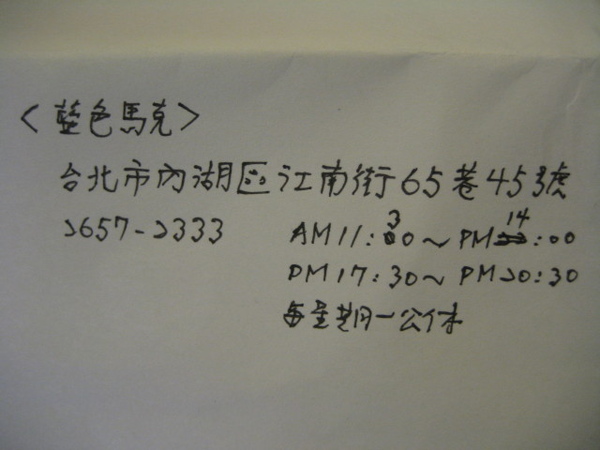 <藍色馬克>
台北市內湖區江南街65巷45號
2657-2333
AM11:30~PM14:00
PM17:30~PM20:30
每星期一公休